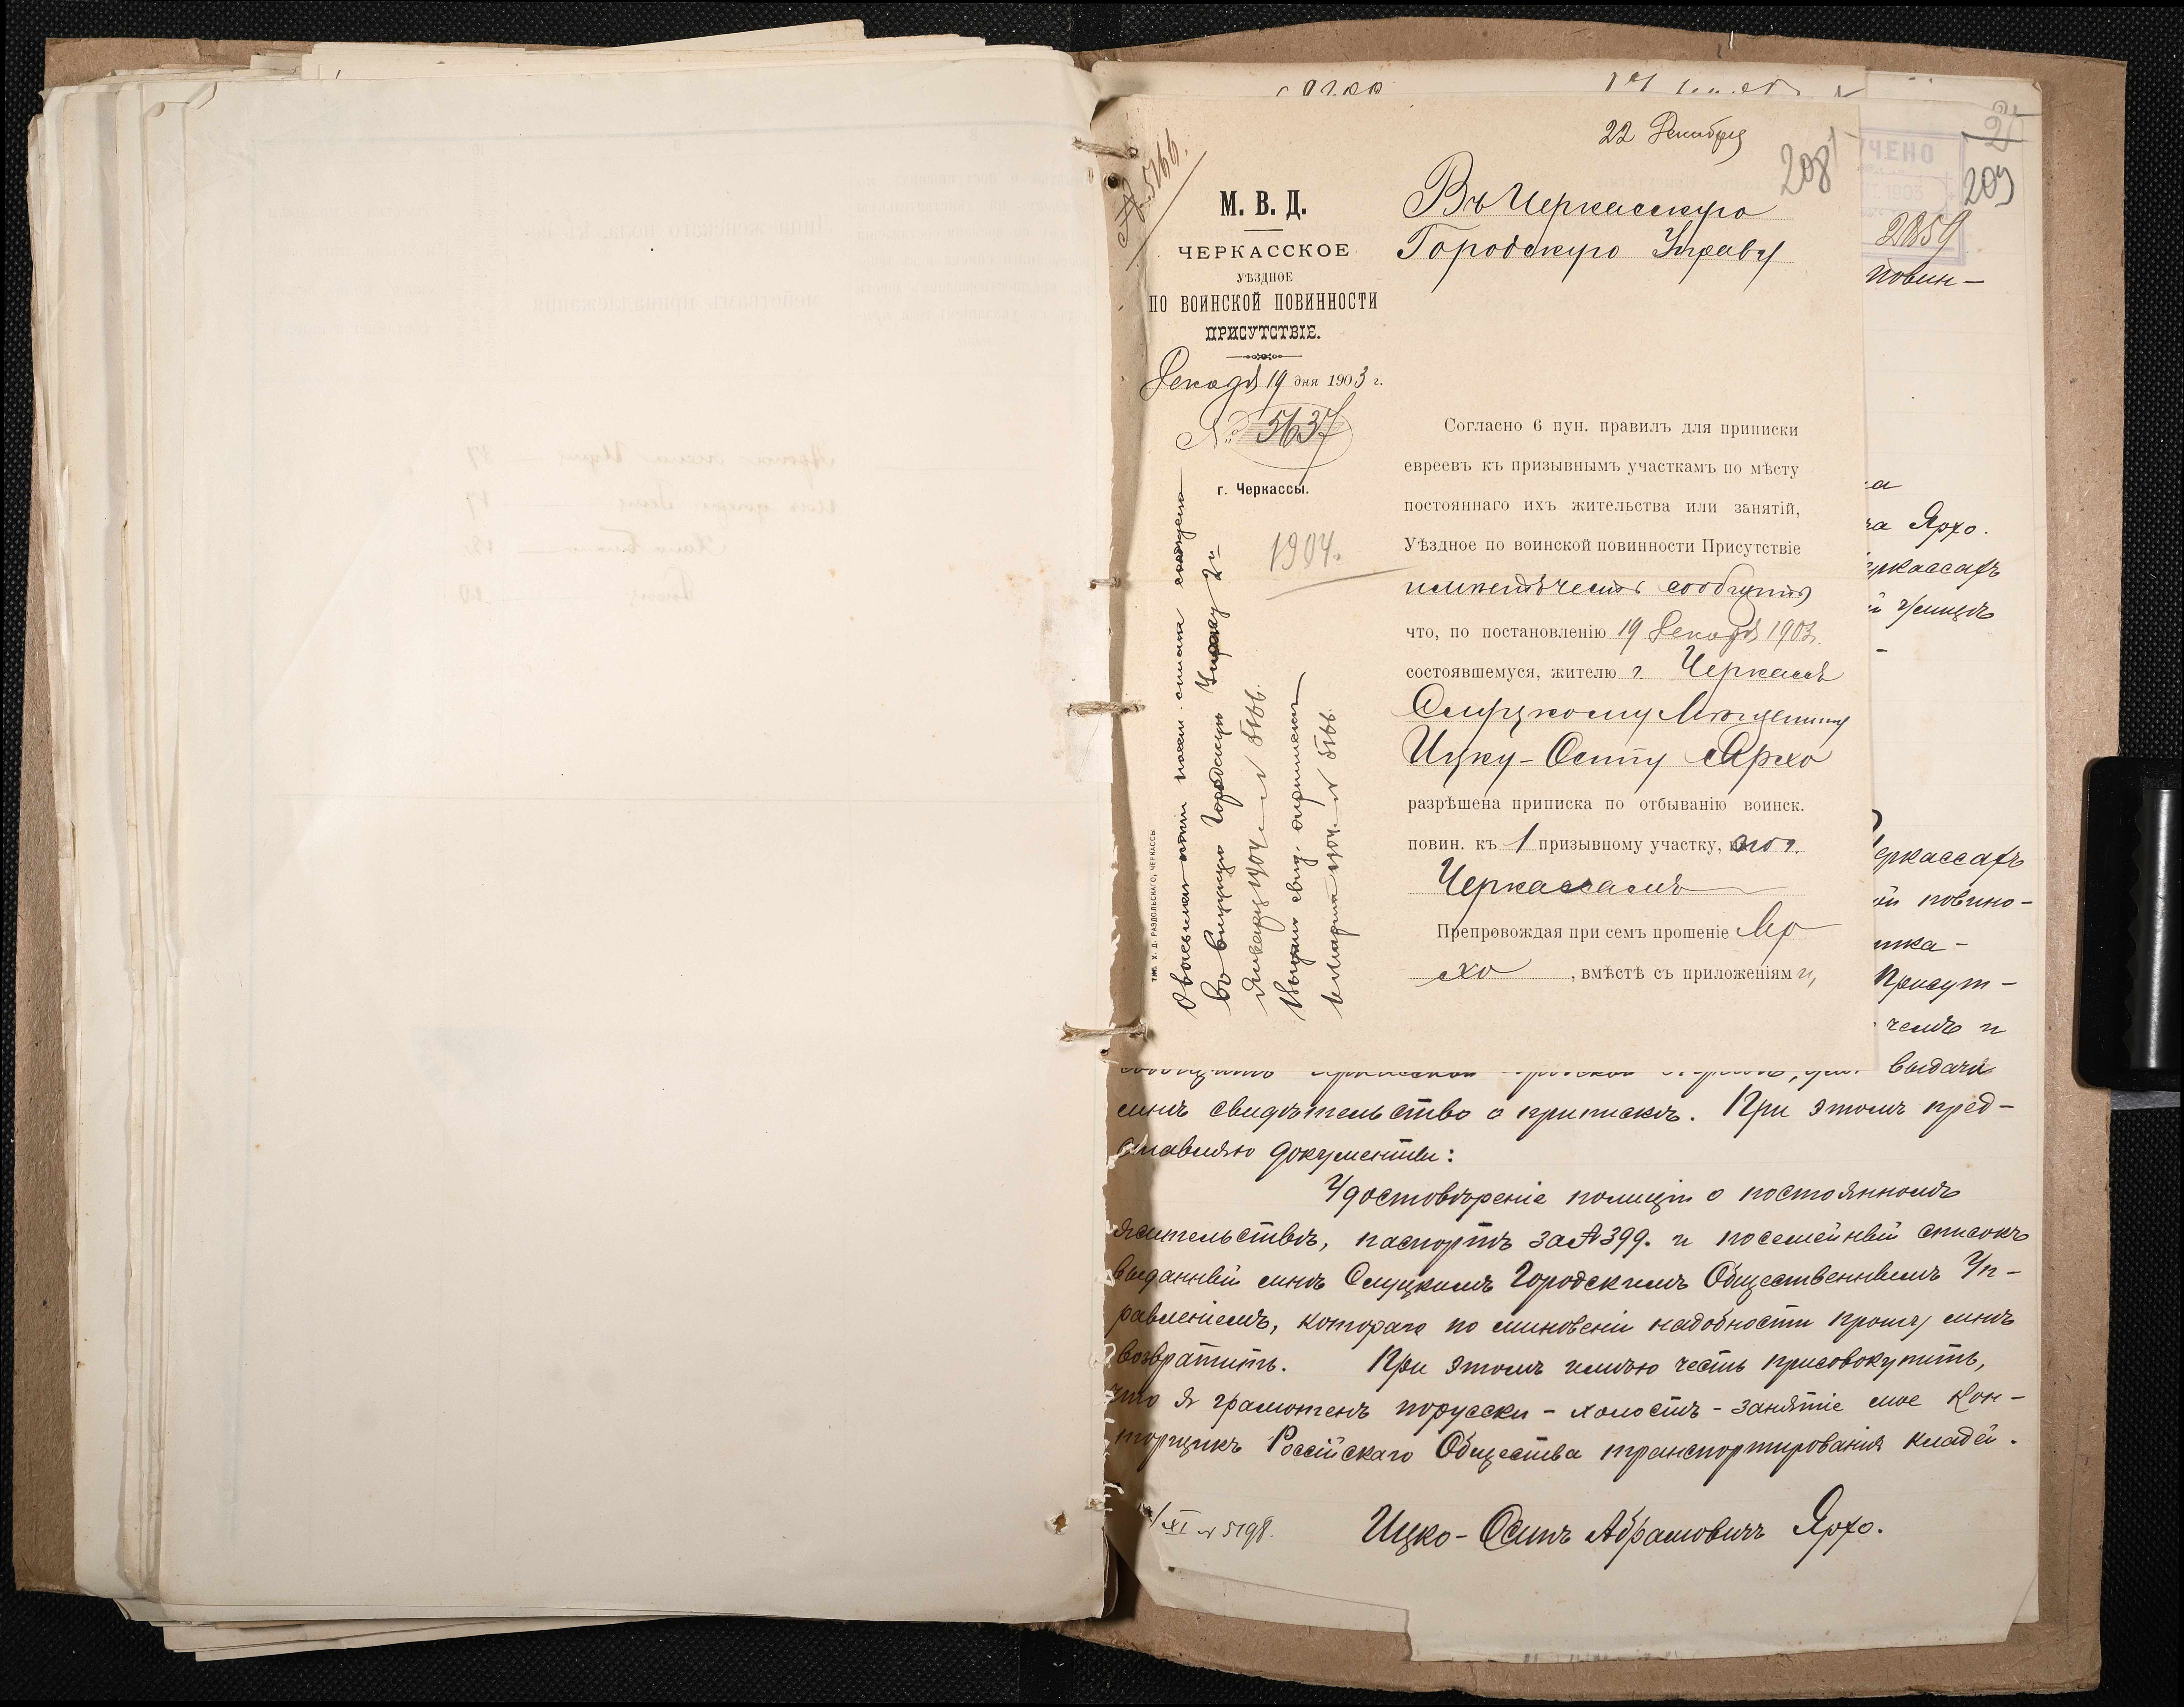 22 Декабря
208
№ 5166.
М. В. Д.
ЧЕРКАССКОЕ
УѢЗДНОЕ
ПО ВОИНСКОЙ ПОВИННОСТИ
ПРИСУТСТВІЕ.
Декабря 19 дня 1903 г.
№ 5637
г. Черкассы.
1904.
Въ Черкасскую
Городскую Управу
Согласно 6 пун. правилъ для приписки
евреевъ къ призывнымъ участкамъ по мѣсту
постояннаго ихъ жительства или занятій,
Уѣздное по воинской повинности Присутствіе
сообщить
что, по постановленію 19 Декабря 1903
состоявшемуся, жителю г. Черкассъ
Слуцкому Мѣщанину
Ицку-Осипу Ярхо
разрѣшена приписка по отбыванію воинск.
повин. къ 1 призывному участку, по г.
Черкассамъ
Препровождая при семъ прошеніе Яр
хо, вмѣстѣ съ приложеніями,
въ Слуцкую Городскую Управу 2
Января 1904 г. № 5166.
Выдано свид. о припискѣ
№ 5166.
ТИП. Х. Д. РАЗДОЛЬСКАГО, ЧЕРКАССЫ.
ЧЕНО
209
2859
повин-
ха Ярхо.
еркассахъ
й улицѣ
еркассахъ
ой повино-
Присут-
чемъ и
выдачи
мнѣ свидѣтельство о припискѣ. При этомъ пред-
ставляю документы:
Удостовѣреніе полиціи о постоянномъ
жительствѣ, паспортъ за № 399. и посемейный списокъ
выданный мнѣ Слуцкимъ Городскимъ Общественнымъ Уп-
равленіемъ, котораго по миновеніи надобности прошу мнѣ
возвратить. При этомъ имѣю честь присовокупить,
что я грамотенъ порусски - холостъ - занятіе мое Кон-
торщикъ Россійскаго Общества транспортированія кладей.
XI № 5198.
Ицко-Осипъ Абрамовичъ Ярхо.